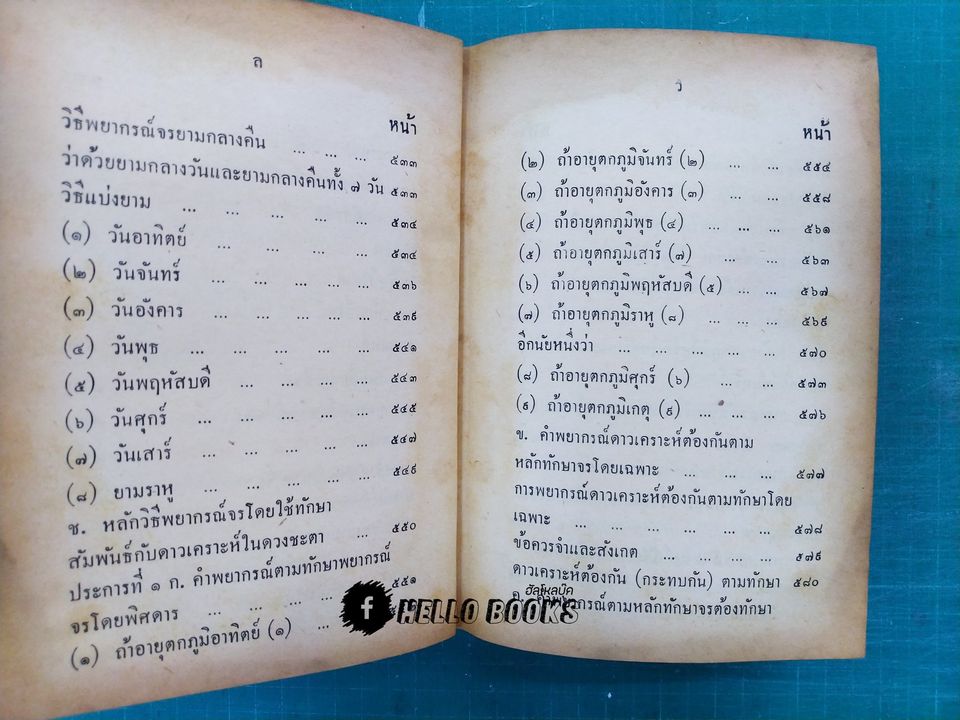 ล
หน้า
วิธีพยากรณ์จรยามกลางคืน ... ... ... ๕๓๓
ว่าด้วยยามกลางวันและยามกลางคืนทั้ง ๗ วัน ๕๓๓
วิธีแบ่งยาม ... ... ... ... ... ๕๓๔
(๑) วันอาทิตย์ ... ... ... ... ๕๓๔
(๒) วันจันทร์ ... ... ... ... ... ๕๓๖
(๓) วันอังคาร ... ... ... ... ... ๕๓๙
(๔) วันพุธ ... ... ... ... ... ๕๔๑
(๕) วันพฤหัสบดี ... ... ... ... ๕๔๓
(๖) วันศุกร์ ... ... ... ... ... ๕๔๕
(๗) วันเสาร์ ... ... ... ... ... ๕๔๗
(๘) ยามราหู ... ... ... ... ... ๕๔๙
ช. หลักวิธีพยากรณ์จรโดยใช้ทักษา
สัมพันธ์กับดาวเคราะห์ในดวงชะตา ... ๕๕๐
ประการที่ ๑ ก. คำพยากรณ์ตามทักษาพยากรณ์
จรโดยพิศดาร ... ... ... ... ๕๕๑
(๑) ถ้าอายุตกภูมิอาทิตย์ (๑) ...
ว
หน้า
(๒) ถ้าอายุตกภูมิจันทร์ (๒) ... ... ๕๕๔
(๓) ถ้าอายุตกภูมิอังคาร (๓) ... ... ๕๕๘
(๔) ถ้าอายุตกภูมิพุธ (๔) ... ... ... ๕๖๑
(๕) ถ้าอายุตกภูมิเสาร์ (๗) ... ... ... ๕๖๓
(๖) ถ้าอายุตกภูมิพฤหัสบดี (๕) ... ... ๕๖๗
(๗) ถ้าอายุตกภูมิราหู (๘) ... ... ... ๕๖๙
อีกนัยหนึ่งว่า ... ... ... ... ๕๗๐
(๘) ถ้าอายุตกภูมิศุกร์ (๖) ... ... ๕๗๓
(๙) ถ้าอายุตกภูมิเกตุ (๙) ... ... ... ๕๗๖
ข. คำพยากรณ์ดาวเคราะห์ต้องกันตาม
หลักทักษาจรโดยเฉพาะ ... ... ... ๕๗๗
การพยากรณ์ดาวเคราะห์ต้องกันตามทักษาโดย
เฉพาะ ... ... ... ... ... ๕๗๘
ข้อควรจำและสังเกต ... ... ... ๕๗๙
ดาวเคราะห์ต้องกัน (กระทบกัน) ตามทักษา ๕๘๐
ค. คำพยากรณ์ตามหลักทักษาจรต้องทักษา
ฮัลโหลบุ๊ค
HELLO BOOKS